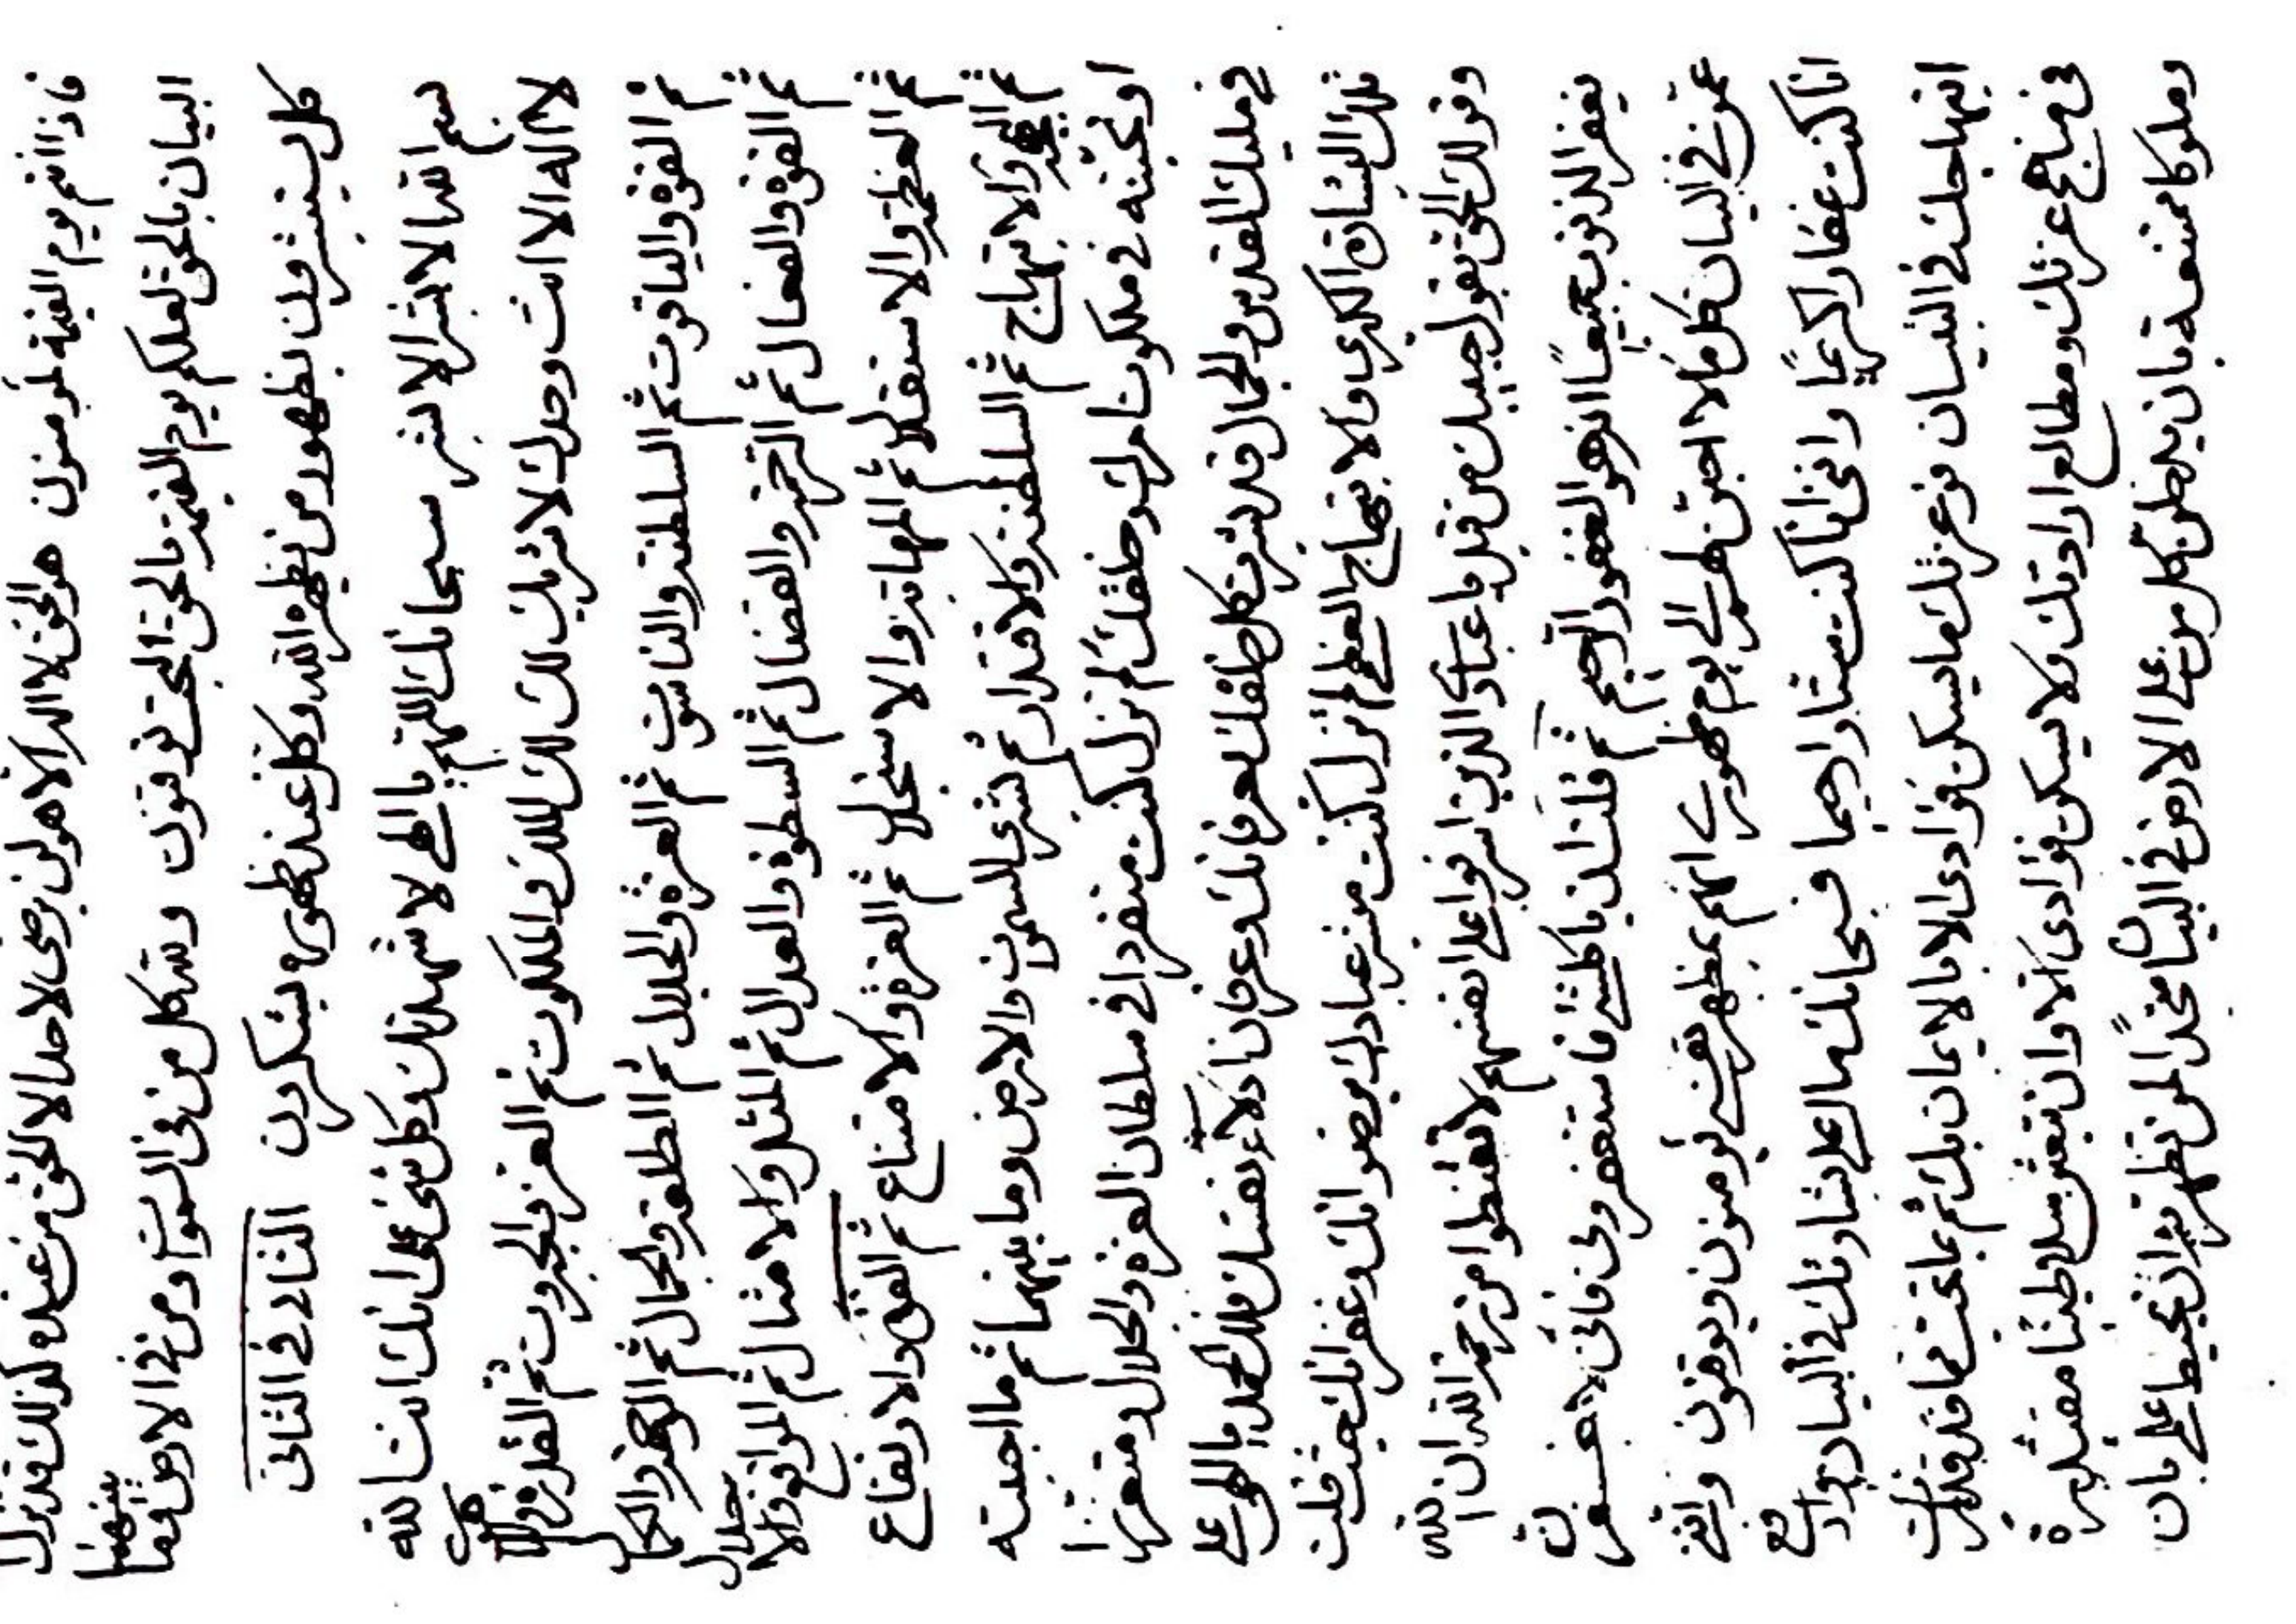 فاذا انتم يوم القيمة لتؤمنون هو الحق لا اله الا هو لن يرضى لاحد الا الحق من عنده كذلك قد نزل
البيان بالحق لعلكم يوم القيمة بالحق البحت توقنون وسكل من فى السموات ومن فى الارض وما بينهما
كل يستبشرون بظهور من يظهره الله وكل عند ظهوره يشكرون الثالث فى الثانى
بسم الله الابشر الابشر سبحانك اللهم يا الهى لاشهدنك وكل شئ على انك انت الله
لا اله الا انت وحدك لا شريك لك لك الملك والملكوت ثم العز والجبروت ثم القدرة واللاهوت
ثم القوة والياقوت ثم السلطنة والناسوت ثم العزة والجلال ثم الطلعة والجمال ثم الوجهة والكمال
ثم القوة والفعال ثم الرحمة والفضال ثم السطوة والعدال ثم المثل والامثال ثم المواقع والاجلال
ثم العظمة والاستقلال ثم المهابة والاستجلال ثم العزة والامتناع ثم القوة والارتفاع
ثم البهجة والابتهاج ثم السلطنة والاقتدار ثم لترى السموات والارض وما بينهما ثم ما احببته
او تحببنه فى ملكوت امرك وخلقك لم تزل كنت منفردا فى سلطان العزة والجلال ومتعززا
فى مليك القدس والجمال قد بشرت كل خلقك بعرفانك وعرفان ادلاء نفسك فلك الحمد يا الهى على
تلك البشارة الكبرى والابتهاج العظمى لم تزل كنت مبشر عبادك برضوانك وغفرانك حيث قلت
وقولك الحق بقول حبيبك من قبل يا عبادى الذين اسرفوا على انفسهم لا تقنطوا من رحمة الله ان الله
يغفر الذنوب جميعا انه هو الغفور الرحيم ثم قلت فاستغفرونى فانى لاغفرن
عمن فى البيان كل ما لا احبن ظهرى الى يوم ظهورى انهم بمظهر نفسى يؤمنون ويوقنون واننى
انا كنت غفارا كريما واننى انا كنت ستارا رحيما فسبحانك ما اعلى بشاراتك فى البيان وادلع
ابتهاجك فى التبيان فوعزتك ما يسكن فؤادى الا بالايمان بك ثم بما تحت فما قد قدرت
فى مناهج عزتك ومطالع ارادتك ولا يسكن فؤادى الا وان تبعثن سلاطينا مقتدرة
وملوكا ممتنعة بان يدخلن كل من على الارض فى البيان مخدا لمن تظهرنه ان تحيط على بان